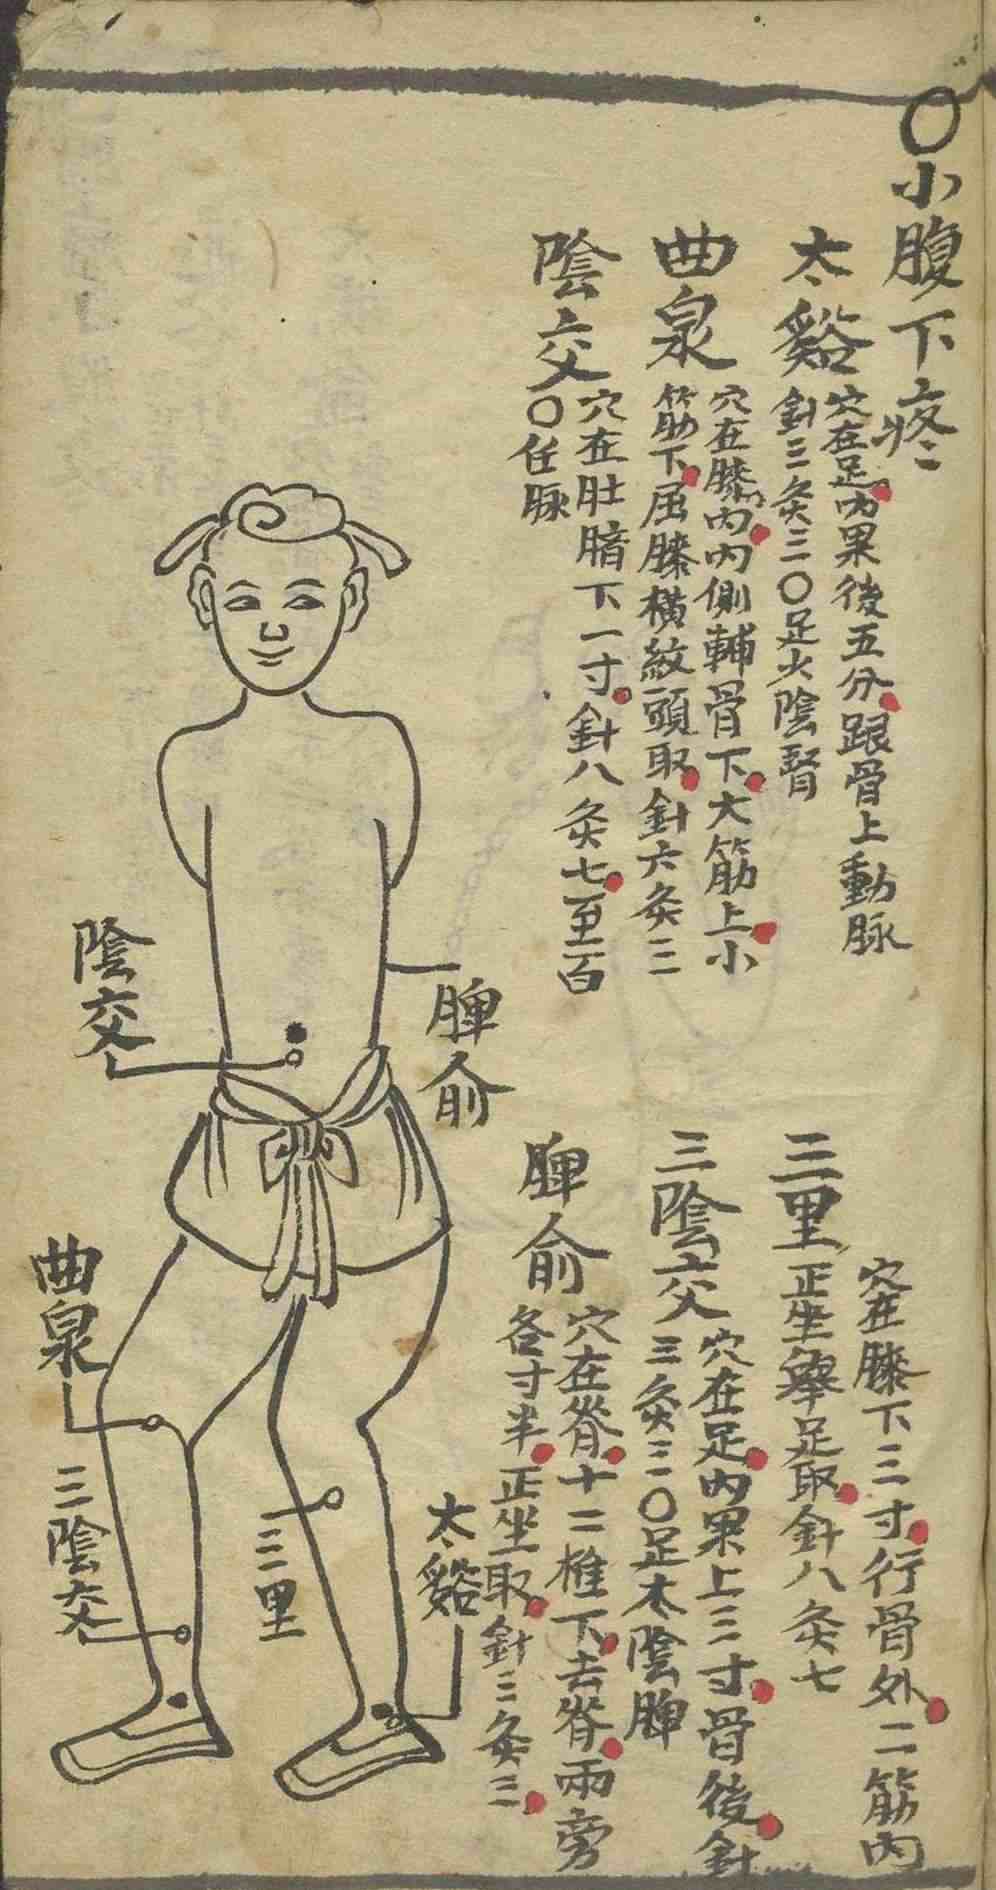 〇小腹下疼
太谿
穴在足內果後五分跟骨上動脉
針三灸三〇足火陰腎
曲泉
穴在膝內內側輔骨下大筋上小
筋下屈膝橫紋頭取針六灸三
陰交
穴在肚腤下一寸針八灸七至百
〇任脉
三里
穴在膝下三寸行骨外二筋內
正坐舉足取針八灸七
三陰交
穴在足內果上三寸骨後針
三灸三〇足太陰脾
脾俞
穴在脊十二椎下去脊兩旁
各寸半正坐取針三灸三
陰交
脾俞
曲泉
三陰交
三里
太谿